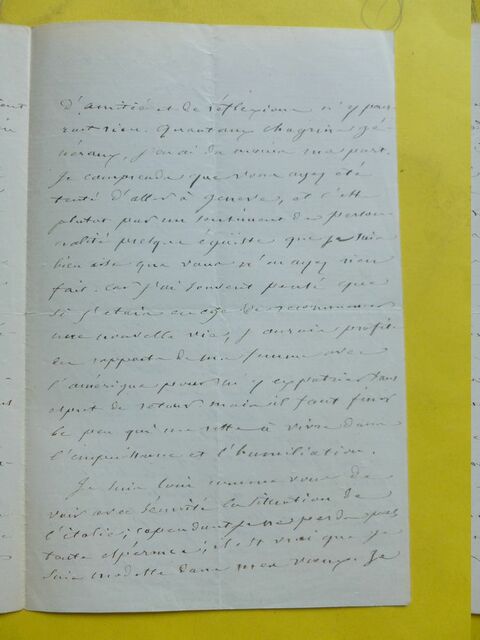 D'amitié et de réflexions n'y pour-
ront rien. Quant aux chagrins gé-
néraux, j'en ai du moins ma part.
Je comprends que vous ayez été
tenté d'aller à Genève, et c'est
plutot par un sentiment de person-
nalité presque égoïste que je suis
bien aise que vous n'en ayez rien
fait. Car j'ai souvent pensé que
si j'étais en âge de recommencer
une nouvelle vie, j'aurais profité
des rapports de ma femme avec
l'amérique pour m'y expatrier sans
esprit de retour mais il faut finir
le peu qui me reste à vivre dans
l'impuissance et l'humiliation.
Je suis loin comme vous de
voir avec sécurité la situation de
l'italie; cependant je ne perds pas
toute espérance; il est vrai que je
suis modeste dans mes vœux. Je